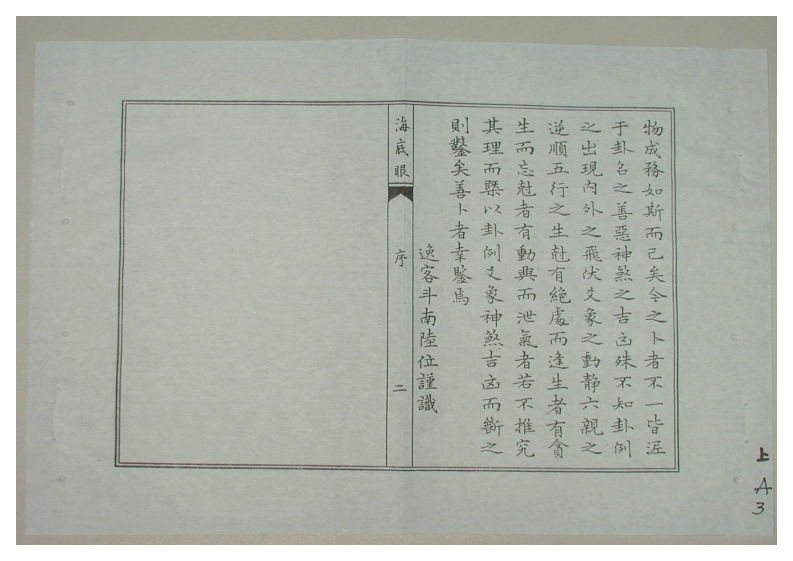 物成務如斯而已矣今之卜者不一皆泥
于卦名之善惡神煞之吉凶殊不知卦例
之出現內外之飛伏爻象之動靜六親之
逆順五行之生尅有絕處而逢生者有貪
生而忘尅者有動興而泄氣者若不推究
其理而槩以卦例爻象神煞吉凶而斷之
則鑿矣善卜者幸鑒焉
逸客斗南陸位謹識
海底眼
序
二
上
A
3